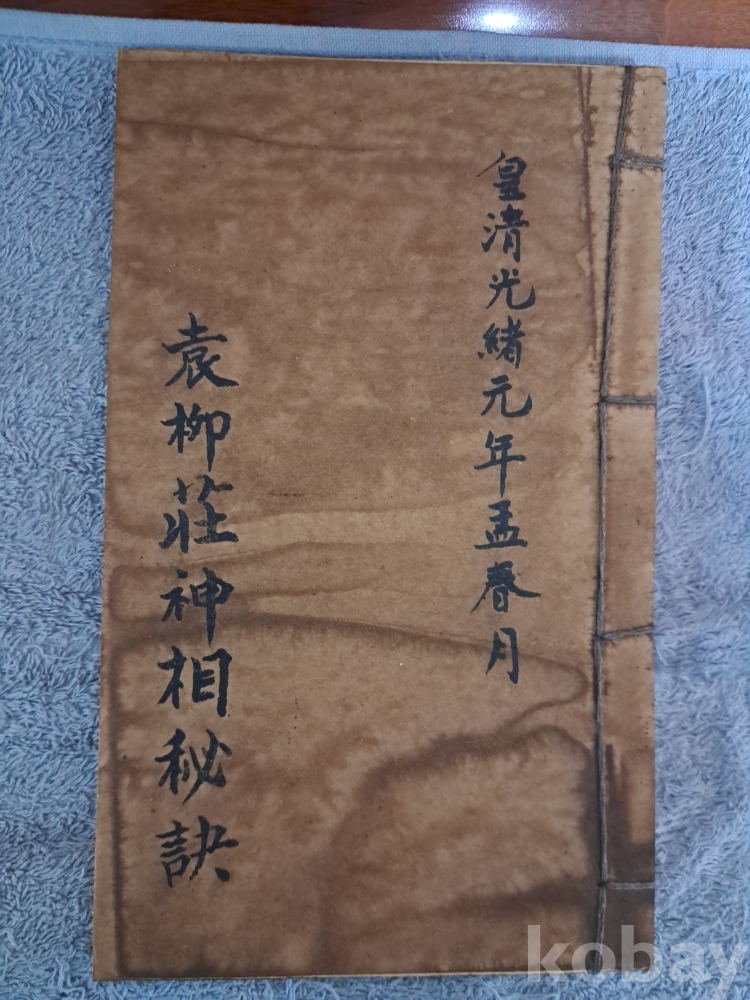 皇清光緒元年孟春月
袁柳莊神相秘訣
kobay